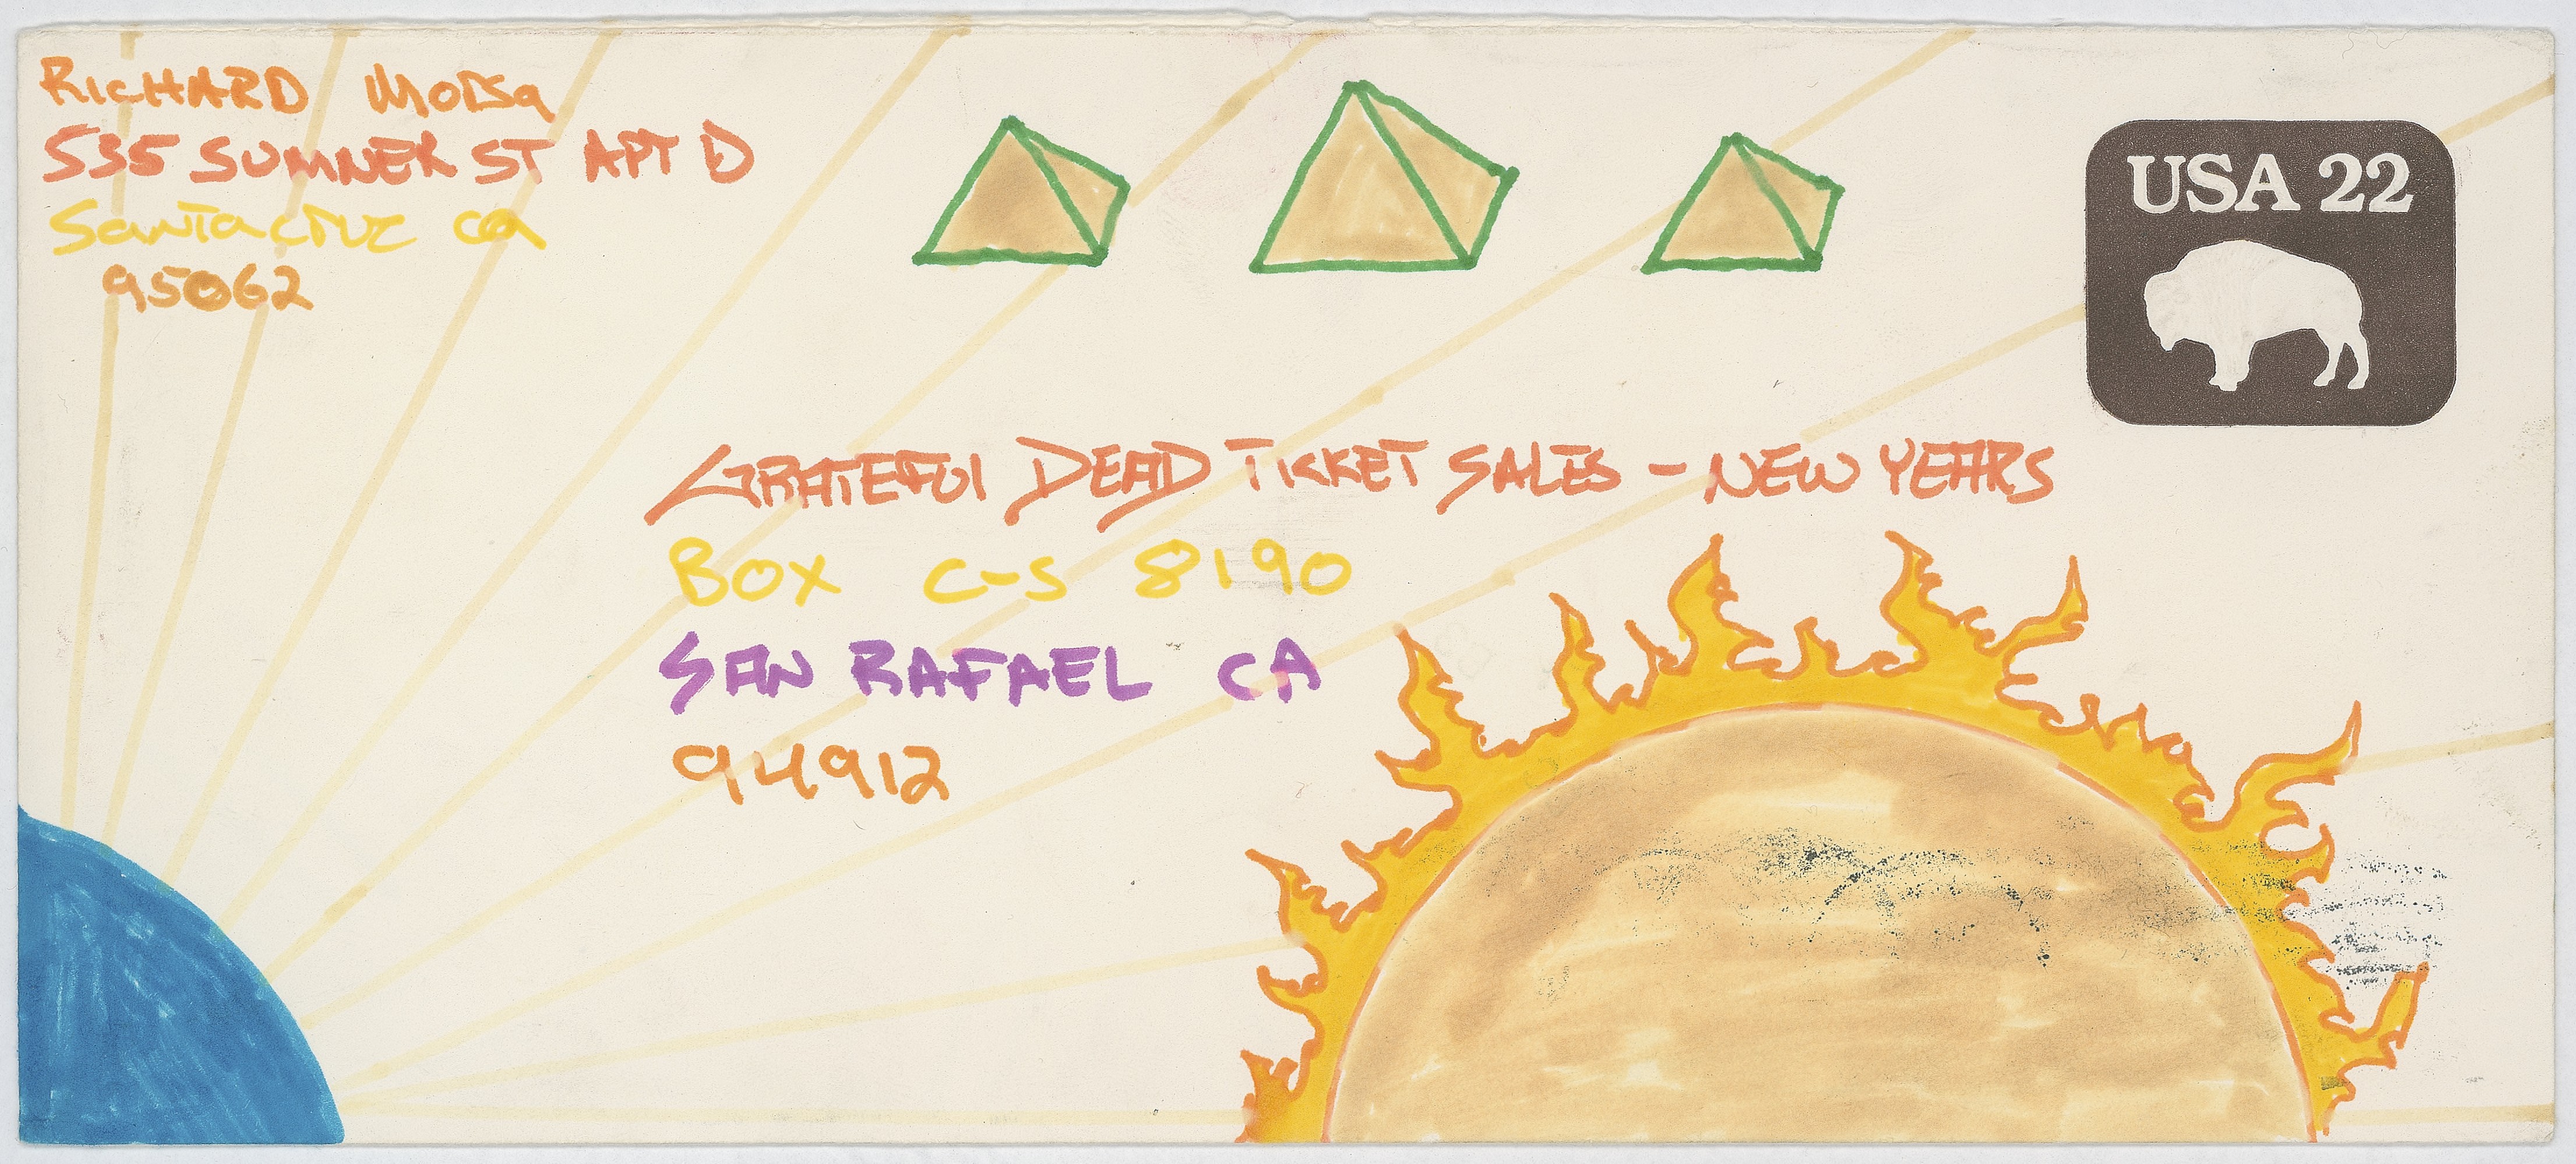 RICHARD
535 SUMNER ST APT D
Santa cruz ca
95062
USA 22
GRATEFUl DEAD TICKET SALES - NEW YEARS
BOX C-S 8190
SAN RAFAEL CA
94912